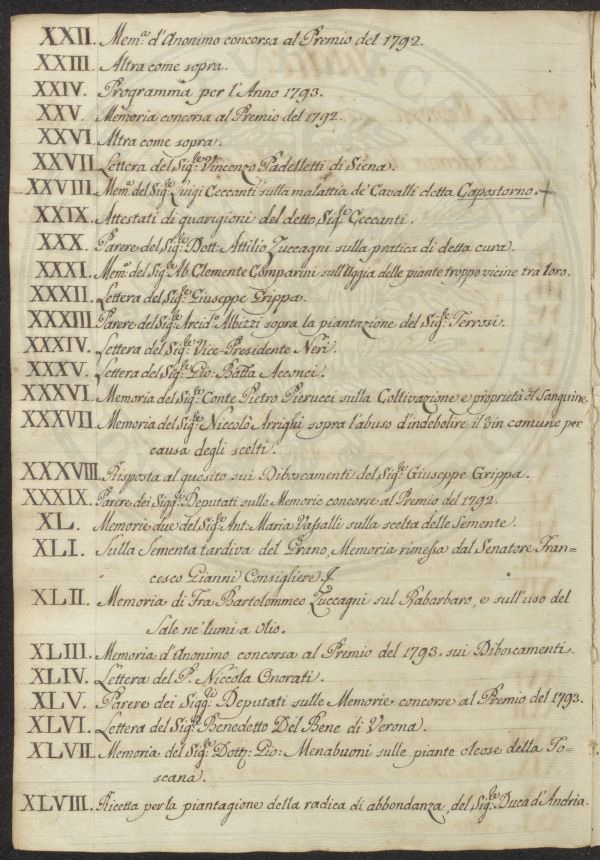 XXII. Mem.ª d'Anonimo concorsa al Premio del 1792.
XXIII. Altra come sopra.
XXIV. Programma per l'Anno 1793.
XXV. Memoria concorsa al Premio del 1792.
XXVI. Altra come sopra.
XXVII. Lettera del Sig.re Vincenzo Padelletti di Siena.
XXVIII. Mem.ª del Sig.re Luigi Ceccanti sulla malattia de' Cavalli detta Capostorno. +
XXIX. Attestati di guarigioni del detto Sig.re Ceccanti.
XXX. Parere del Sig.re Dott. Attilio Zuccagni sulla pratica di detta cura.
XXXI. Mem.ª del Sig.re Ab. Clemente Comparini sull'Uggia delle piante troppo vicine tra loro.
XXXII. Lettera del Sig.re Giuseppe Grippa.
XXXIII. Parere del Sig.re Arcid.º Albizzi sopra la piantazione del Sig.re Terrosi.
XXXIV. Lettera del Sig.re Vice-Presidente Neri.
XXXV. Lettera del Sig.re Gio: Batta Acconci.
XXXVI. Memoria del Sig.re Conte Pietro Pierucci sulla Coltivazione e proprietà del Sanguine.
XXXVII. Memoria del Sig.re Niccolò Arrighi sopra l'abuso d'indebolire il Vin comune per
causa degli scelti.
XXXVIII. Risposta al quesito sui Diboscamenti del Sig.re Giuseppe Grippa.
XXXIX. Parere dei Sigg.ri Deputati sulle Memorie concorse al Premio del 1792.
XL. Memorie due del Sig.re Ant. Maria Vassalli sulla scelta delle Semente.
XLI. Sulla Sementa tardiva del Grano, Memoria rimessa dal Senatore Fran=
cesco Gianni Consigliere
XLII. Memoria di Fra Bartolommeo Zuccagni sul Rabarbaro, e sull'uso del
Sale ne' lumi a Olio.
XLIII. Memoria d'Anonimo concorsa al Premio del 1793. sui Diboscamenti.
XLIV. Lettera del P. Niccola Onorati.
XLV. Parere dei Sigg.ri Deputati sulle Memorie concorse al Premio del 1793.
XLVI. Lettera del Sig.re Benedetto Del Bene di Verona.
XLVII. Memoria del Sig.re Dott: Gio: Menabuoni sulle piante oleose della To=
scana.
XLVIII. Ricetta per la piantagione della radica di abbondanza, del Sig.re Duca d'Andria.